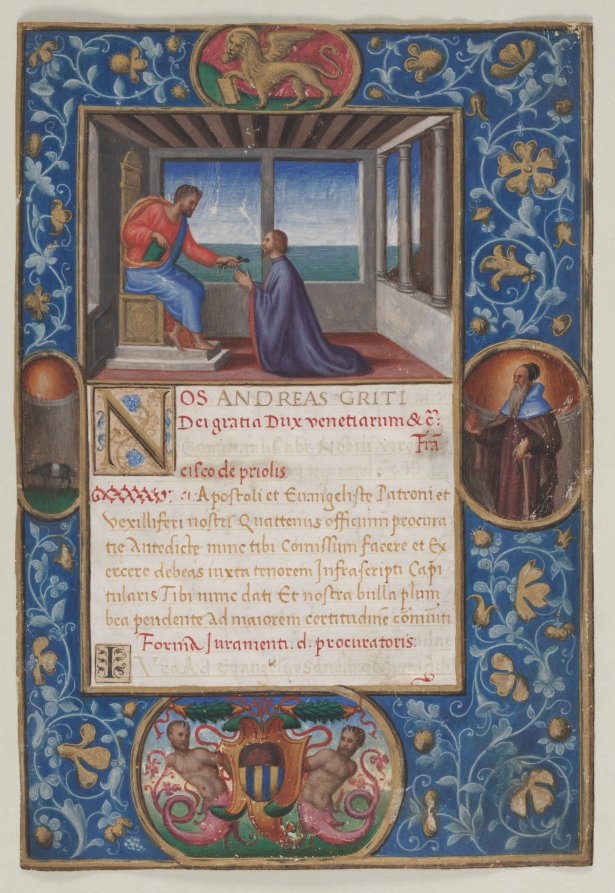 NOS ANDREAS GRITI
Dei gratia Dux venetiarum & c̃:
Frã
cisco de priolis
Apostoli et Euangeliste Patroni et
Vexilliferi nostri Quattenus officium procura
tie Antedicte nunc tibi Comissum facere et Ex
ercere debeas iuxta tenorem Infrascripti Capi
tularis Tibi nunc dati Et nostra bulla plum
bea pendente Ad maiorem certitudinẽ cõmuniti
Forma Iuramenti .d. procuratoris
I